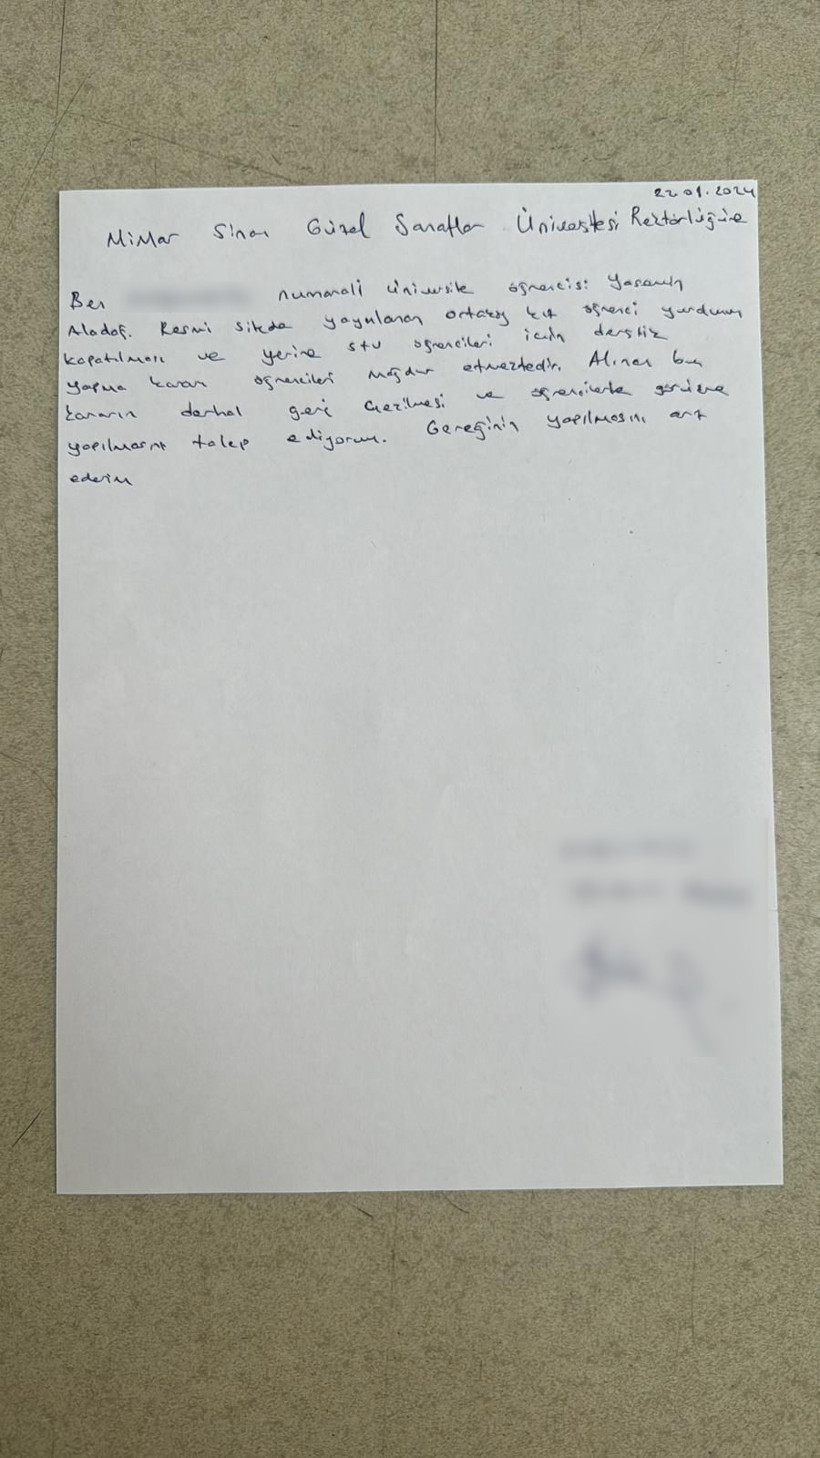 22.01.2024
Mimar Sinan Güzel Sanatlar Üniversitesi Rektörlüğüne
Ben numaralı üniversite öğrencisi Yasemin
Aladağ. Resmi sitede yayınlanan ortaköy kız öğrenci yurdunun
kapatılması ve yerine stü öğrencileri için derslik
yapma kararı öğrencileri mağdur etmektedir. Alınan bu
kararın derhal geri çekilmesi ve öğrencilerle görüşme
yapılmasını talep ediyorum. Gereğinin yapılmasını arz
ederim